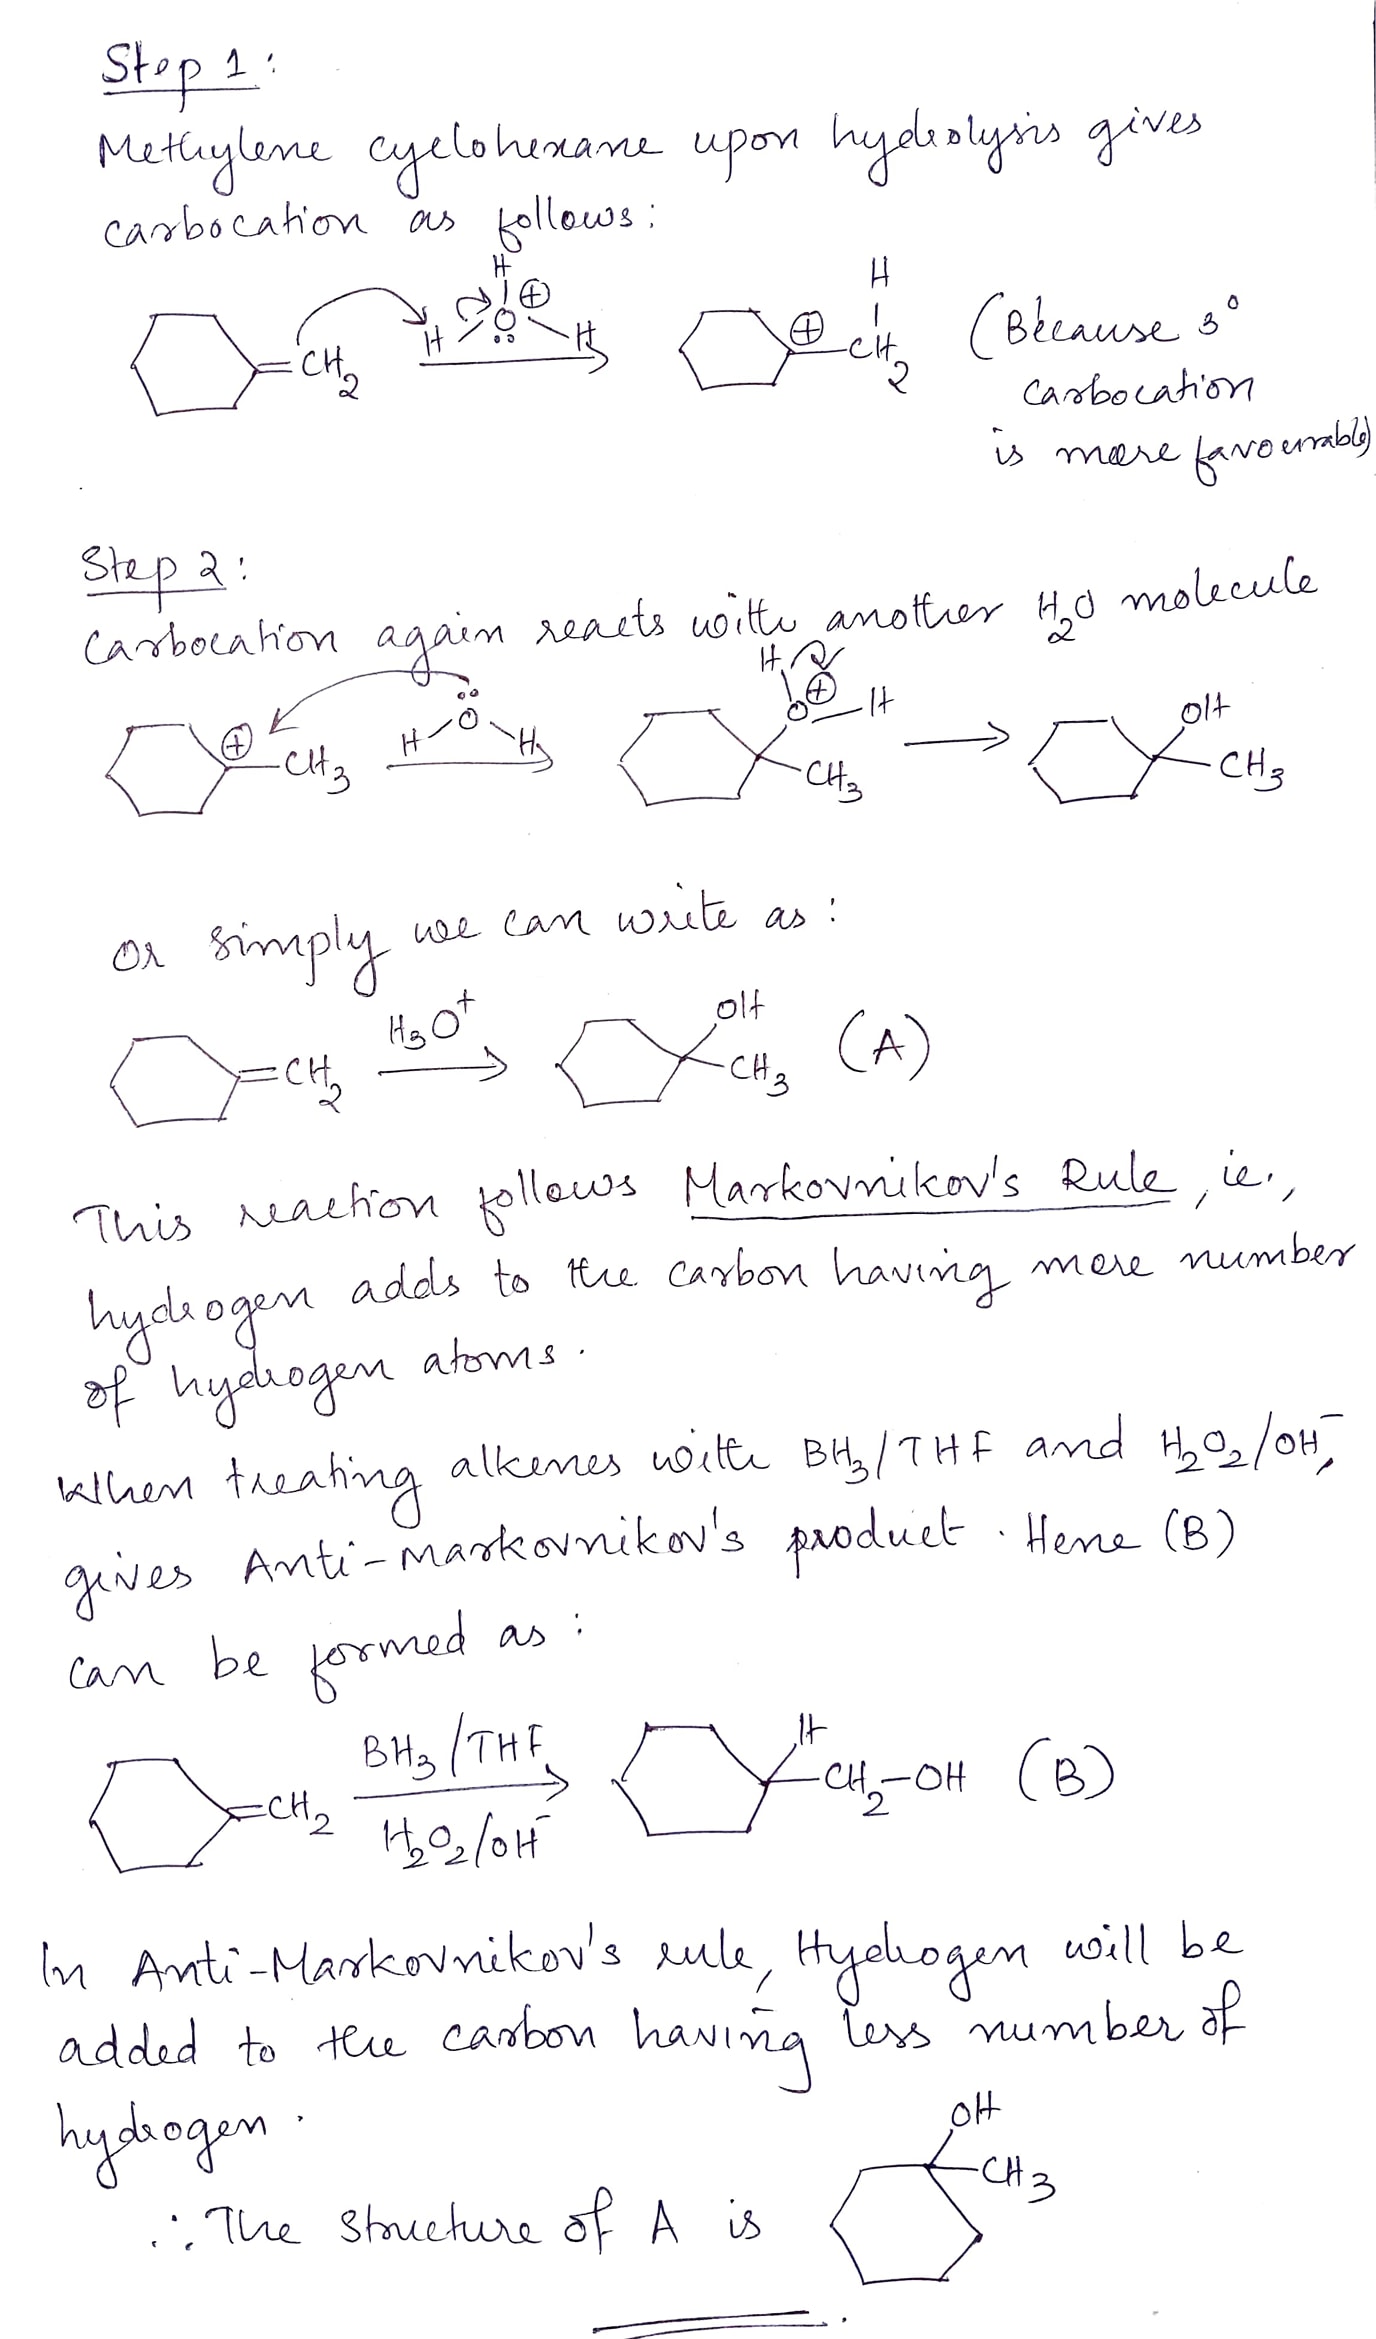 Step 1:
Methylene cyclohexane upon hydrolysis gives
carbocation as follows:
H
H
H O ⊕ H
=CH2
⊕ -CH2
(Because 3°
carbocation
is more favourable)
Step 2:
Carbocation again reacts with another H2O molecule
H
⊕ -CH3
H O H
O ⊕ -H
CH3
OH
CH3
Or simply we can write as:
=CH2
H3O+
OH
CH3
(A)
This reaction follows Markovnikov's Rule, ie.,
hydrogen adds to the carbon having more number
of hydrogen atoms.
When treating alkenes with BH3/THF and H2O2/OH-,
gives Anti-Markovnikov's product. Hene (B)
can be formed as:
BH3/THF
=CH2
H2O2/OH-
H
CH2-OH (B)
In Anti-Markovnikov's rule, Hydrogen will be
added to the carbon having less number of
hydrogen.
OH
CH3
∴ The structure of A is